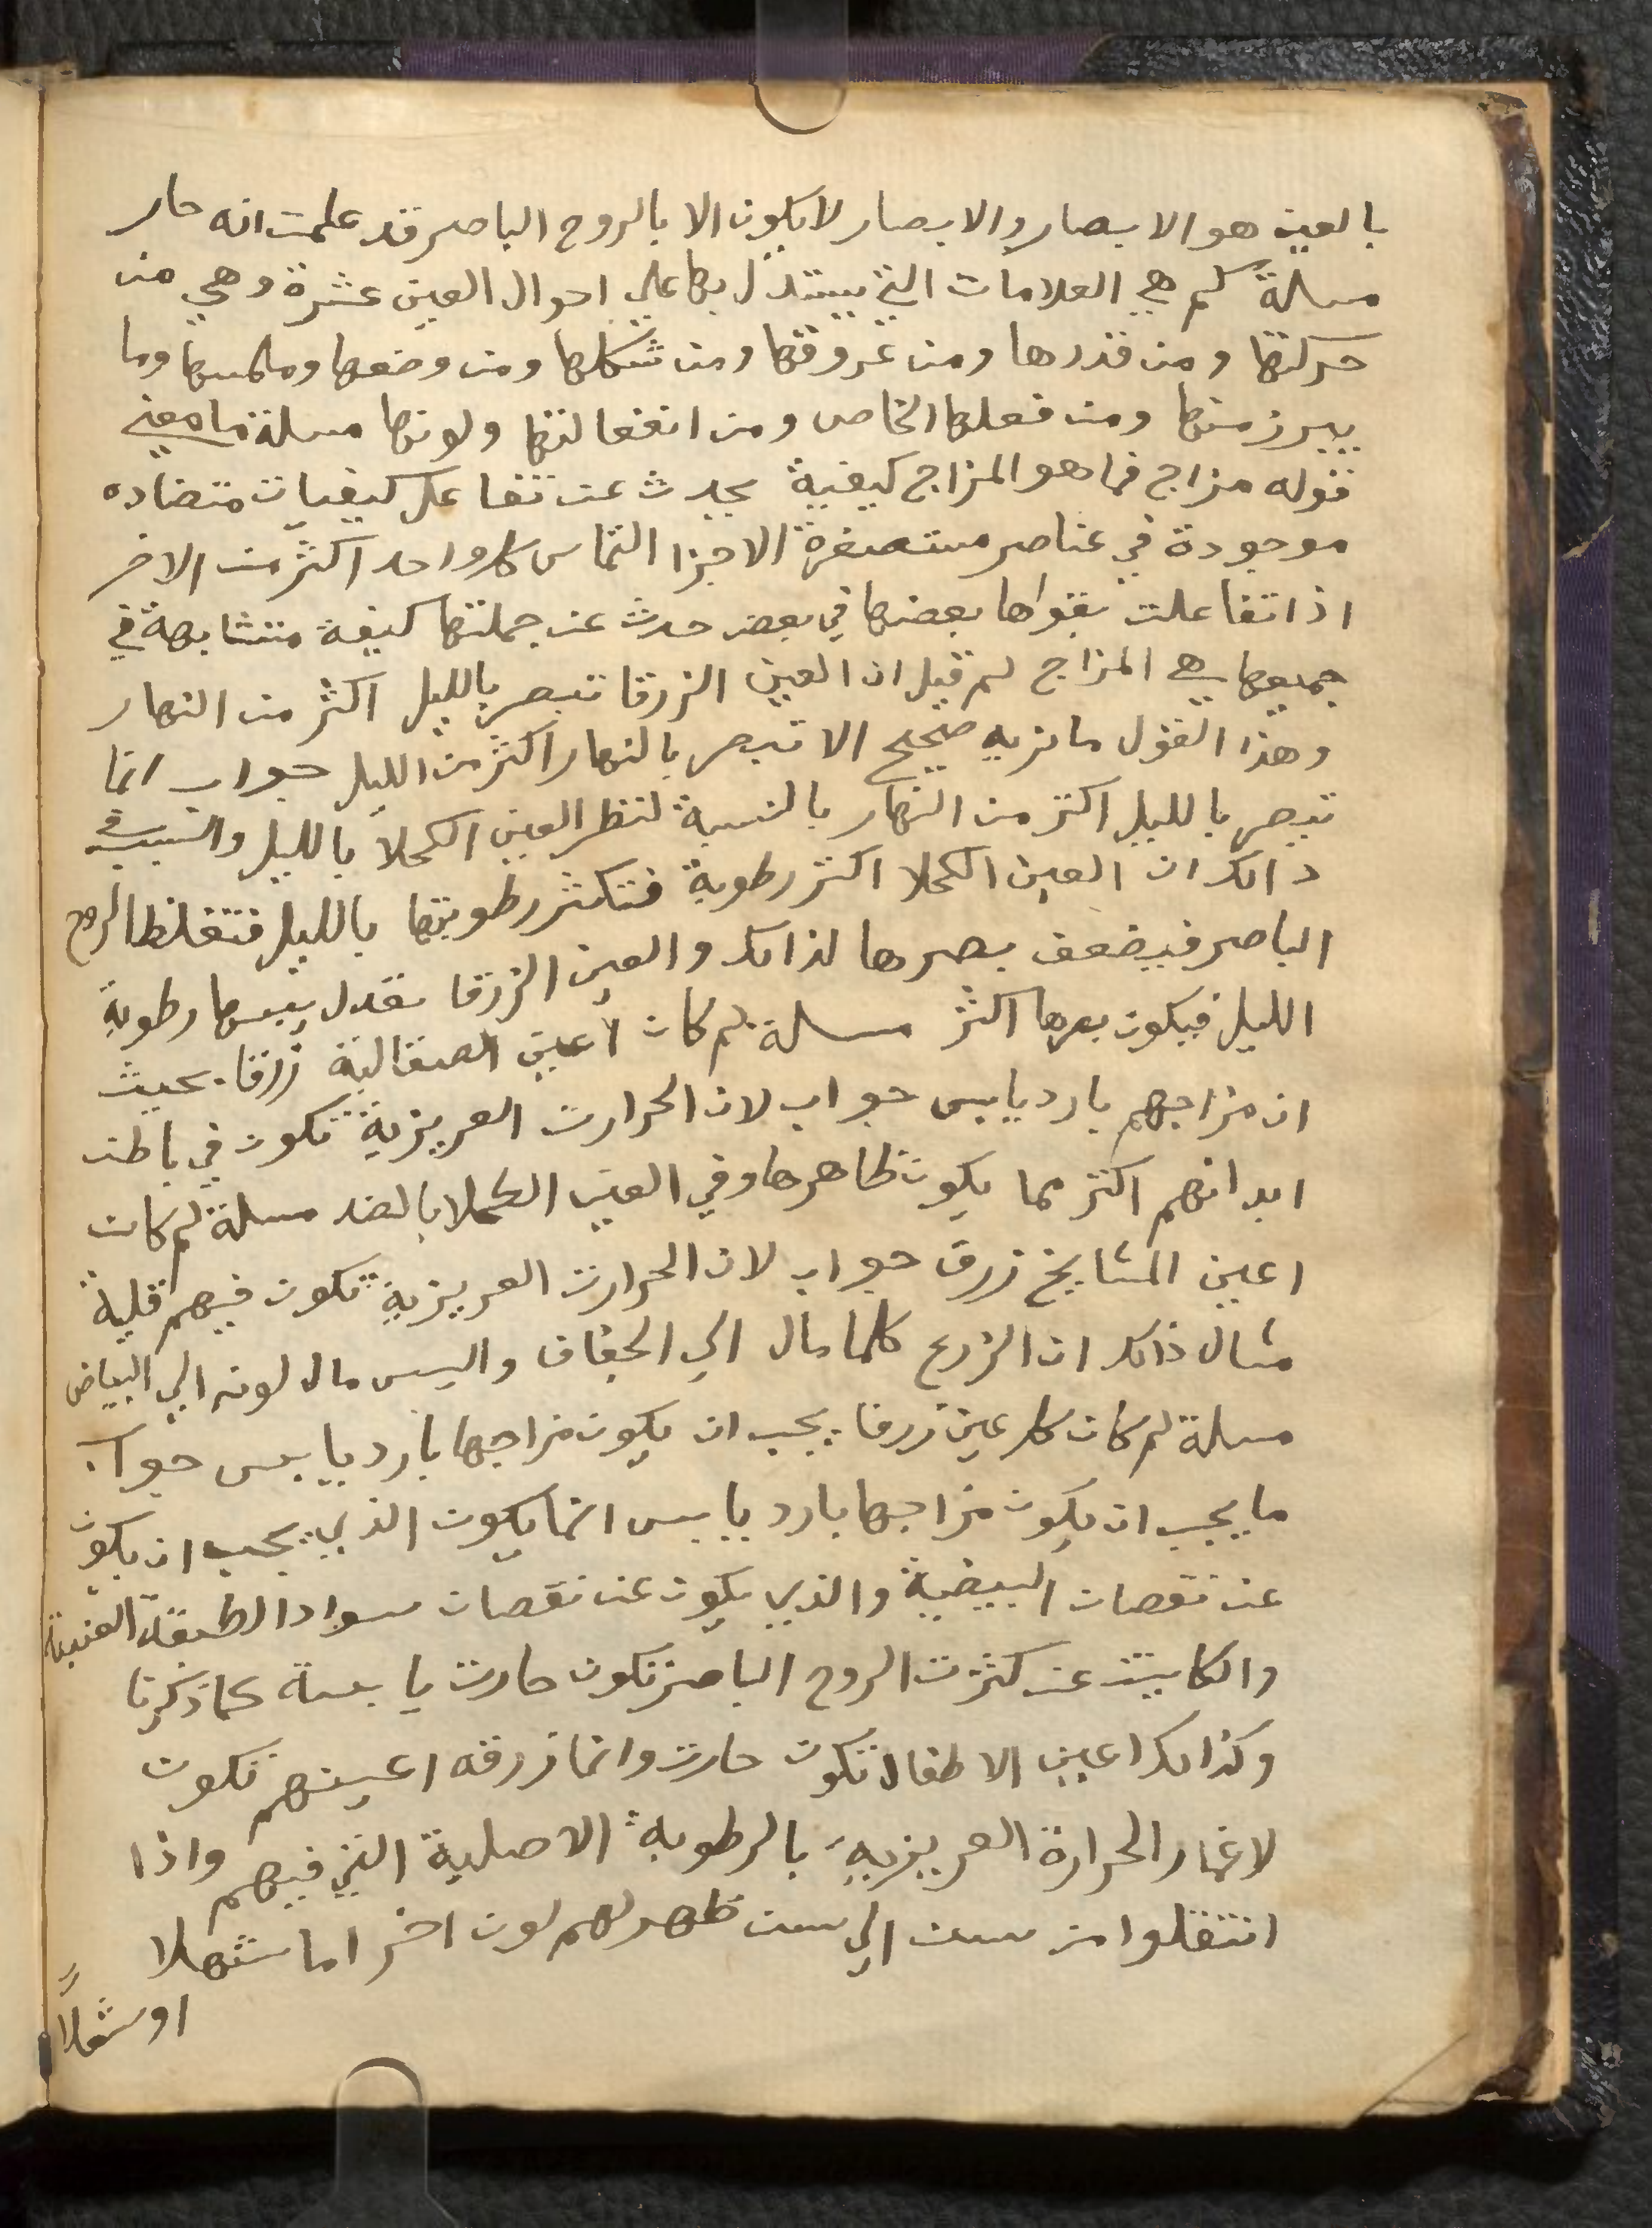 بالعين هو الابصار والابصار لا يكون الا بالروح الباصر قد علمت انه حار
مسلة كم هي العلامات التي يستدل بها علي احوال العين عشرة وهي من
حركتها ومن قدرها ومن عروقها ومن شكلها ومن وضعها وملمسها وما
يبرز منها ومن فعلها الخاص ومن انفعالتها ولونها مسلة ما معني
قوله مزاج فما هو المزاج كيفية يحدث عن تفاعل كيفيات متضاده
موجودة في عناصر مستصغرة الاجزا التماس كل واحد اكثر من الاخر
اذا تفاعلت بقواها بعضها في بعض حدث عن جملتها كيفة متشابهة في
جميعها هي المزاج لم قيل ان العين الزرقا تبصر بالليل اكثر من النهار
وهذا القول ما نريه صحيح الا تبصر بالنهار اكثر من الليل جواب انما
تبصر بالليل اكتر من النهار بالنسبة لنظر العين الكحلا بالليل والسبب في
ذالك ان العين الكحلا اكتر رطوبة فتكثر رطوبتها بالليل فتغلظ الروح
الباصر فيضعف بصرها لذالك والعين الزرقا تعدل يبسها رطوبة
الليل فيكون بصرها اكثر مسلة لم كان اعين الصقالبة زرقا بحيث
ان مزاجهم بارد يابس جواب لان الحرارت الغريزية تكون في باطن
ابدانهم اكتر مما يكون ظاهرها وفي العين الكحلا بالضد مسلة لم كان
اعين المشايخ زرق جواب لان الحرارت الغريزية تكون فيهم قلية
مثال ذالك ان الزرع كلما مال الي الجفاف واليبس مال لونه الي البياض
مسلة لم كان كل عين زرقا يجب ان يكون مزاجها بارد يابس جواب
ما يجب ان يكون مزاجها بارد يابس انما يكون الذي يجب ان يكون
عن نقصان البيضية والذي يكون عن نقصان سواد الطبقة العنبية
والكاينت عن كثرت الروح الباصر تكون حارت يابسة كما ذكرنا
وكذالك اعين الاطفال تكون حارت وانما زرقه اعينهم تكون
لاغمار الحرارة الغريزية بالرطوبة الاصلية التي فيهم واذا
انتقلوا من سن الي سن ظهر لهم لون اخر اما شهلا
او شعلاً